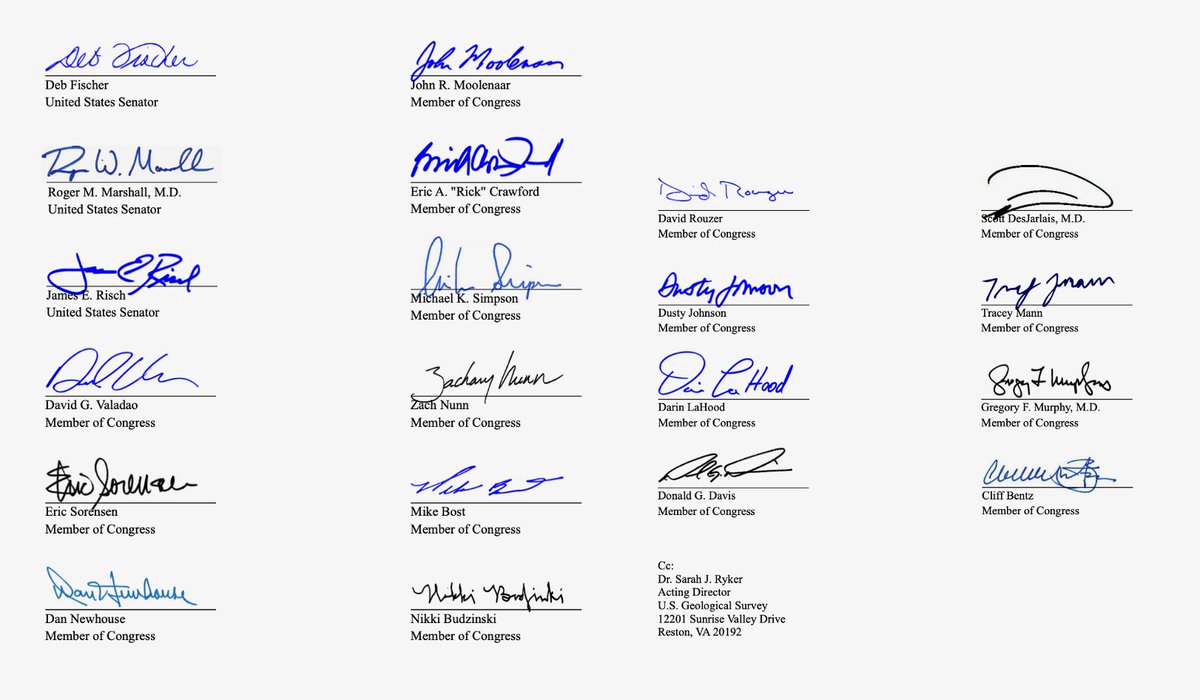 Deb Fischer
Deb Fischer
United States Senator
Roger W. Marshall
Roger M. Marshall, M.D.
United States Senator
James E. Risch
James E. Risch
United States Senator
David G. Valadao
Member of Congress
Eric Sorensen
Eric Sorensen
Member of Congress
Dan Newhouse
Dan Newhouse
Member of Congress
John Moolenaar
John R. Moolenaar
Member of Congress
Eric A. "Rick" Crawford
Member of Congress
Michael K. Simpson
Member of Congress
Zachary Nunn
Zach Nunn
Member of Congress
Mike Bost
Mike Bost
Member of Congress
Nikki Budzinski
Nikki Budzinski
Member of Congress
David Rouzer
David Rouzer
Member of Congress
Dusty Johnson
Dusty Johnson
Member of Congress
Darin LaHood
Darin LaHood
Member of Congress
Donald G. Davis
Member of Congress
Cc:
Dr. Sarah J. Ryker
Acting Director
U.S. Geological Survey
12201 Sunrise Valley Drive
Reston, VA 20192
Scott DesJarlais, M.D.
Member of Congress
Tracey Mann
Member of Congress
Gregory F. Murphy
Gregory F. Murphy, M.D.
Member of Congress
Cliff Bentz
Member of Congress